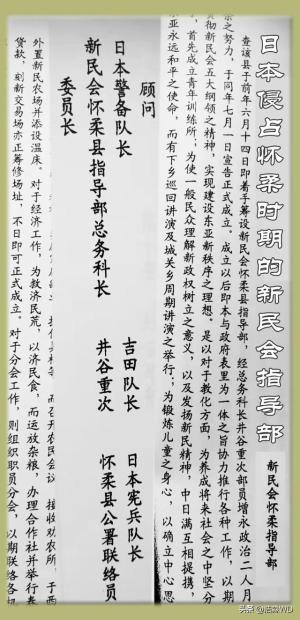 日本侵占怀柔时期的新民会指导部
新民会怀柔指导部
查该县于前年六月十四日即着手筹设新民会怀柔县指导部，经总务科长井谷重次部员增永政治二人月
余之努力，于同年七月一日宣告正式成立。成立以后即本与政府表里为一体之旨协力推行各种工作，以期
贯彻新民会五大纲领之精神，实现建设东亚新秩序之理想。是以对于教化方面，为养成将来社会之中坚分
，首先成立青年训练所；为使一般民众理解新政权树立之意义，以及发扬新民精神，中日满互相提携，
永远和平之使命，而有下乡巡回讲演及城关乡周期讲演之举行；为锻炼儿童之身心，以确立中心思
顾问
日本警备队长 吉田队长 日本宪兵队长
新民会怀柔县指导部总务科长 井谷重次 怀柔县公署联络员
委员长
而召开农民会议
接收劝农所，于西
外置新民农场并添设温床。对于经济工作，为救济民荒，以济民食，而运放杂粮，办理合作社并举行春
贷款，刻新交易场亦正筹修场址，不日即可正式成立。对于分会工作，则组织职员分会，以期联络各机
头条@浩淼WD